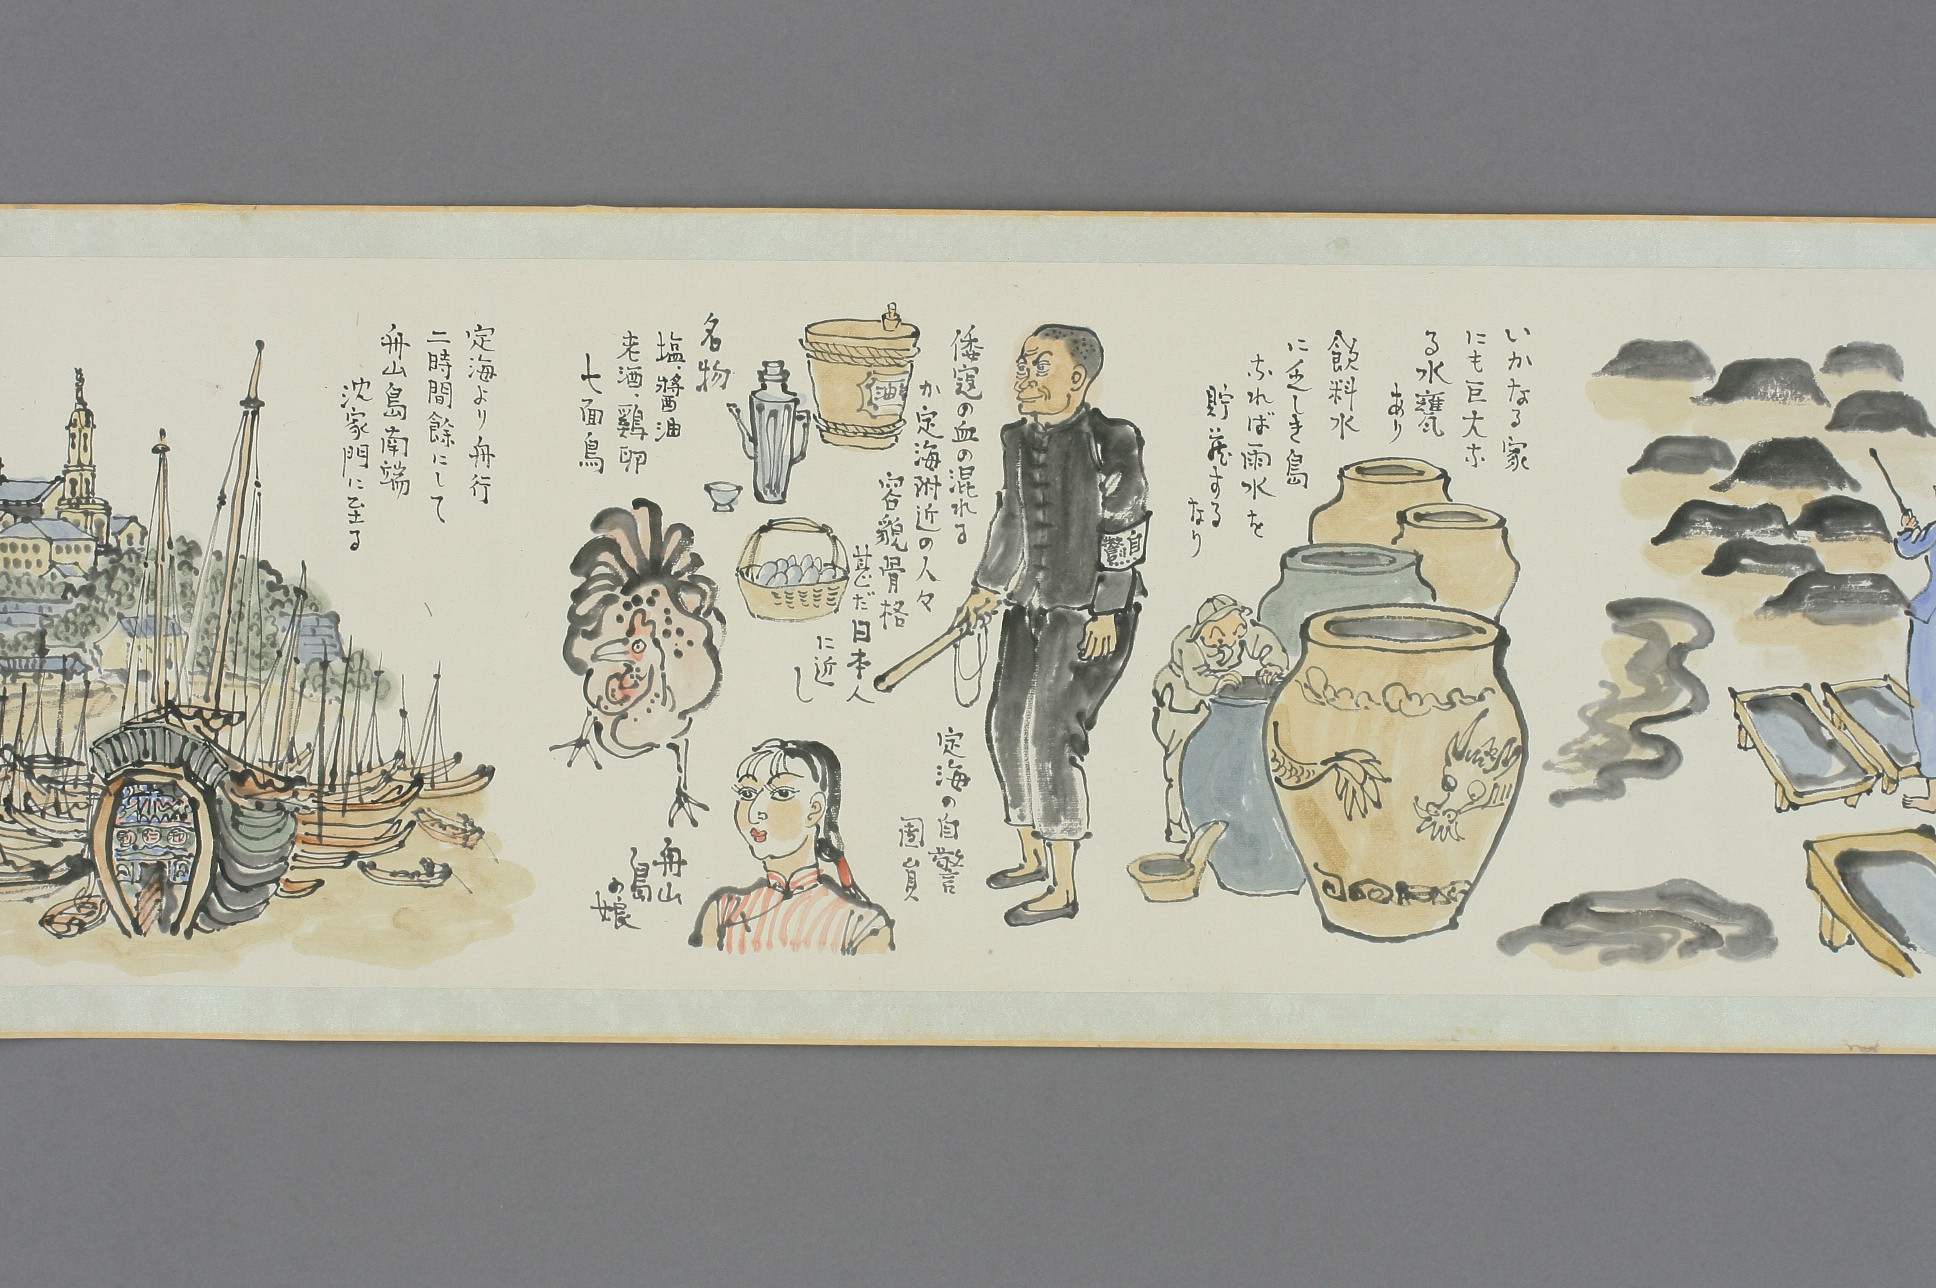 いかなる家
にも巨大な
る水甕
あり
飲料水
に乏しき島
なれば雨水を
貯蔵する
なり
自
警
倭寇の血の混れる
か定海附近の人々
容貌骨格
甚だ日本人
に近
し
定海の自警
團員
油
名物
塩、醤油
老酒、鶏卵
七面鳥
舟山
島
の娘
定海より舟行
二時間餘にして
舟山島南端
沈家門に至る